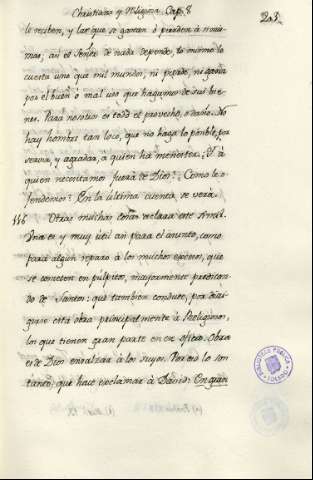 Christiana y Religiosa. Cap. 8.
203.
lo reciten, y las que se ganan ó pierden á noso-
mas; an el señor de nada depende, lo mismo le
cuesta uno que mil mundos, ni pierde, ni gana
por el buen ó mal uso que hagamos de sus bie-
nes. Para nosotros es todo el provecho, o daño. No
hay hombre tan loco, que no haga lo posible, por
servir, y agradar, a quien ha menester. Y á
quien necesitamos fuera de Dios? Como le o-
fendemos? En la última cuenta se verá.
116 Otras muchas cosas declara este simil.
Una es y muy util aň para el asunto, como
para algun reparo à los muchos excesos, que
se cometen en pulpitos, mayormente predican-
do de Santos: que tambien conduce, por diri-
girse esta obra principalmente à Religiosos,
los que tienen gran parte en ese oficio. Obra
es de Dios ensalzar á los suyos. Por eso lo son
tanto; que hace exclamar à David: En gran
BIBLIOTECA PUBLICA
TOLEDO